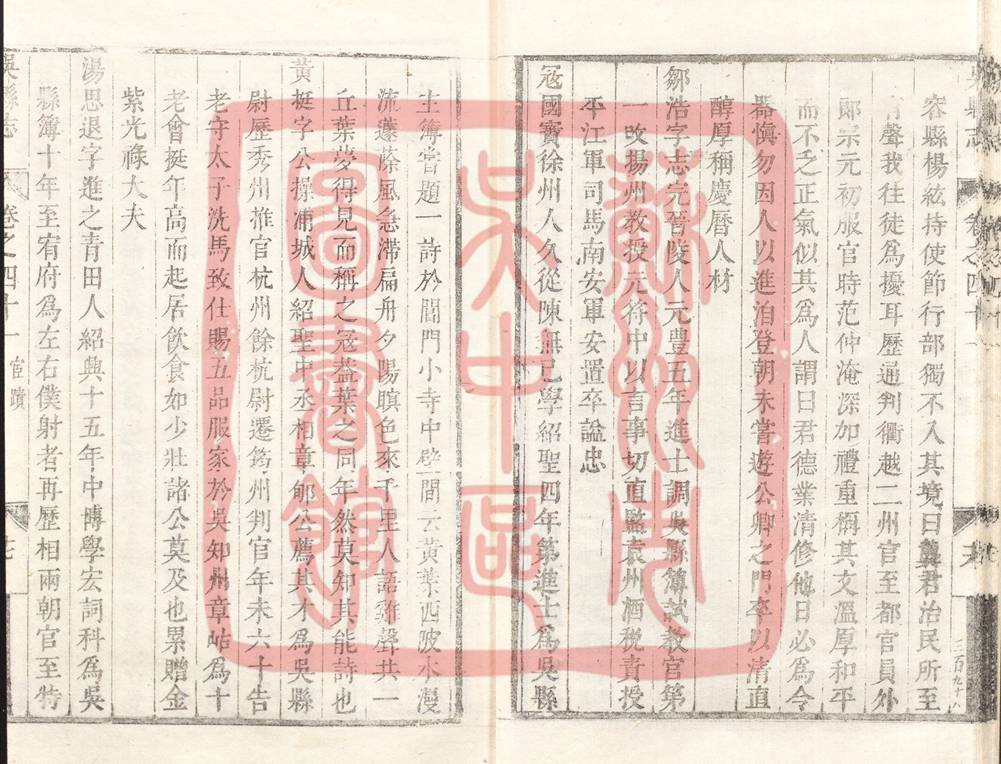 容縣楊紘持使節行部獨不入其境曰龔君治民所至
有聲我往徒為擾耳歷通判衢越二州官至都官員外
郎宗元初服官時范仲淹深加禮重稱其文溫厚和平
而不乏正氣似其為人謂曰君德業清修他日必為令
器慎勿因人以進洎登朝未嘗遊公卿之門卒以清直
醇厚稱慶曆人材
鄒浩字志完晉陵人元豊五年進士調吳縣簿試教官第
一改揚州教授元符中以言事切直監袁州酒稅責授
平江軍司馬南安軍安置卒諡忠
冦國寶徐州人久從陳無己學紹聖四年第進士為吳縣
三百九十八
主簿嘗題一詩於閶門小寺中壁間云黃葉西陂水漫
流籧篨風急滯扁舟夕陽暝色來千里人語雞聲共一
丘葉夢得見而稱之冦葢葉之同年然莫知其能詩也
黃挺字公操浦城人紹聖中丞相章郇公薦其才為吳縣
尉歷秀州推官杭州餘杭尉遷筠州判官年未六十告
老守太子洗馬致仕賜五品服家於吳知州章岵為十
老會挺年高而起居飲食如少壯諸公莫及也累贈金
紫光祿大夫
湯思退字進之青田人紹興十五年中博學宏詞科為吳
縣簿十年至宥府為左右僕射者再歷相兩朝官至特
吳縣志
卷之四十一
宦蹟
蘇州市
吳中區
圖書館